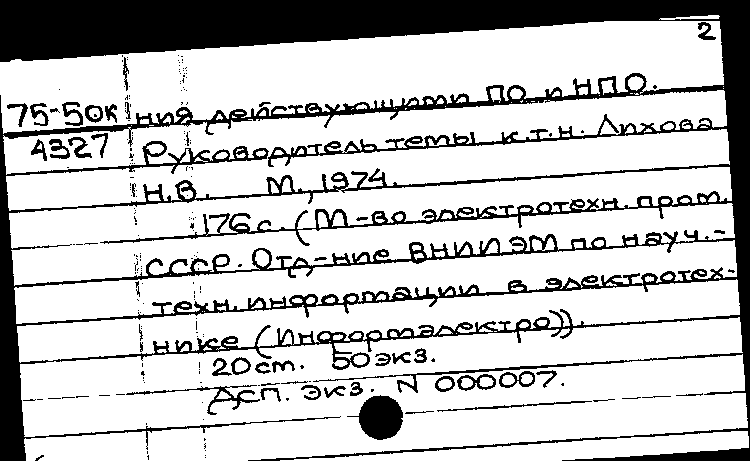 2
75-50к ния действующими ПО и НПО.
4327 Руководитель темы к.т.н. Лихова
Н.В. М., 1974.
176 с. (М-во электротехн. пром.
СССР. Отд-ние ВНИИЭМ по науч.-
техн. информации в электротех-
нике (Информэлектро)).
20 см. 50 экз.
Дсп. Экз. N 000007.